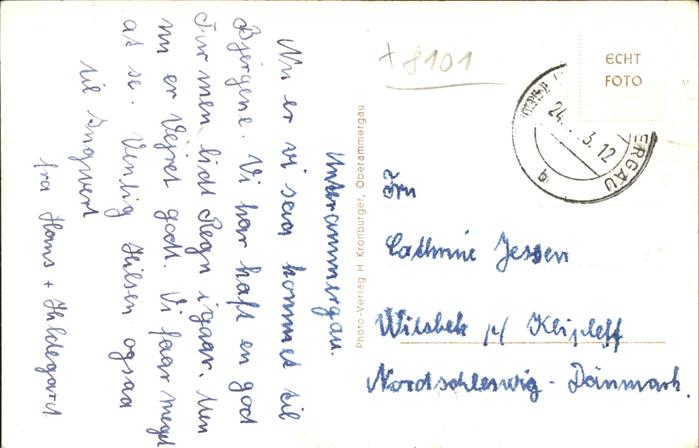 Unterammergau.
Nu er vi saa kommet til
Bjergene. Vi har haft en god
Tur men lidt Regn igaar. Men
nu er Vejret godt. Vi faar meget
at se. Venlig Hilsen ogsaa
til Ingvert
fra Hans + Hildegard.
Photo-Verlag H. Kronburger, Oberammergau
+ 8101
ECHT
FOTO
24. 3. 12
ERGAU
b
Fru
Cathrine Jessen
Wilsbek p/ Klipleff
Nordschleswig - Dänmark.